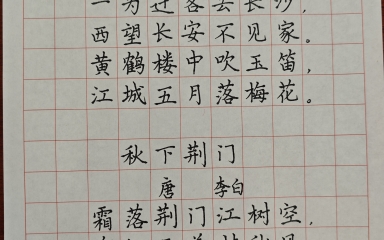 一为迁客去长沙，
西望长安不见家。
黄鹤楼中吹玉笛，
江城五月落梅花。
秋下荆门
唐 李白
霜落荆门江树空，